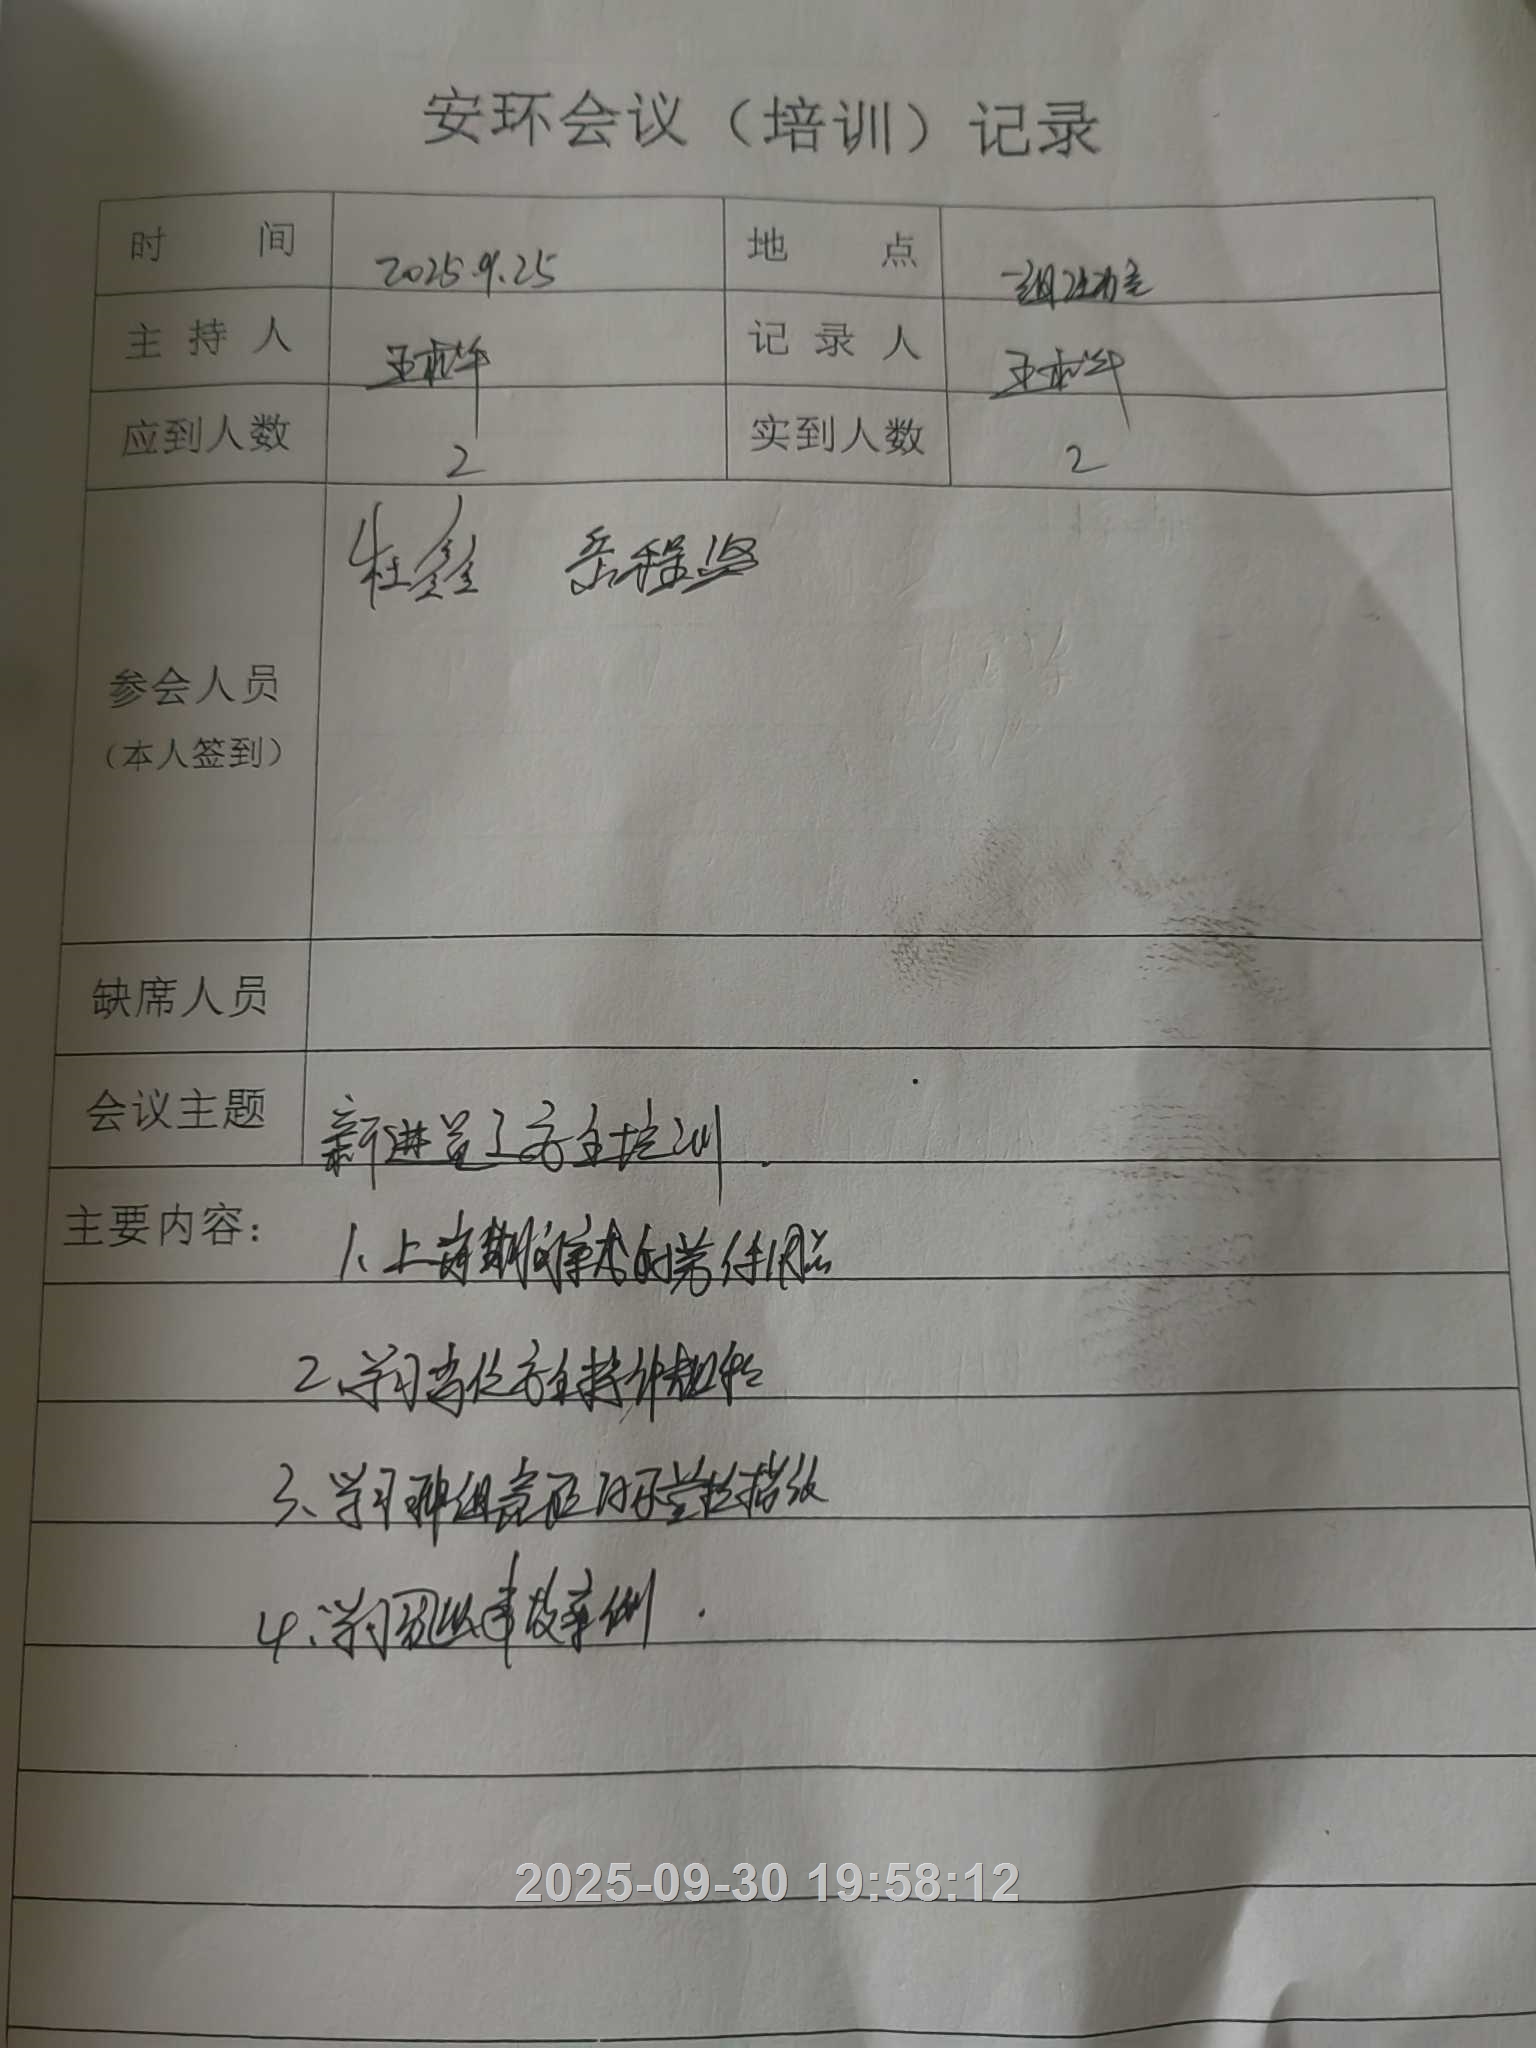 安环会议（培训）记录
时 间 2025.9.25 地 点
主 持 人 王 记 录 人 王
应到人数 2 实到人数 2
杜鑫 岳程
参会人员
（本人签到）
缺席人员
会议主题 新进员工安全培训.
主要内容： 1、上岗期间穿戴好劳保用品
2、学习岗位安全操作规程
3、学习班组
4、学习 事故案例.
2025-09-30 19:58:12